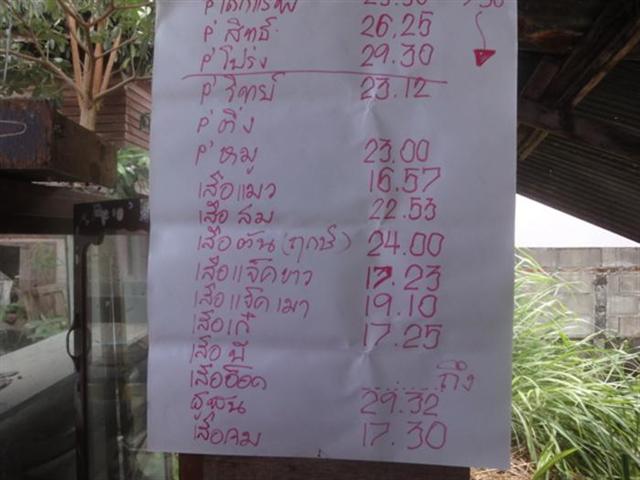 26,25
พี่ โปร่ง 29.30
23.12
พี่ ติ่ง
พี่ หมู 23.00
เสือแมว 16.57
เสือ ลม 22.53
เสือ ตัน (ฤกษ์) 24.00
เสือแจ็คขาว 17.23
เสือแจ๊ค เมา 19.10
เสือเก๋ 17.25
เสือ บี
เสืออ๊อด ........ถึง
29.32
เสือคม 17.30